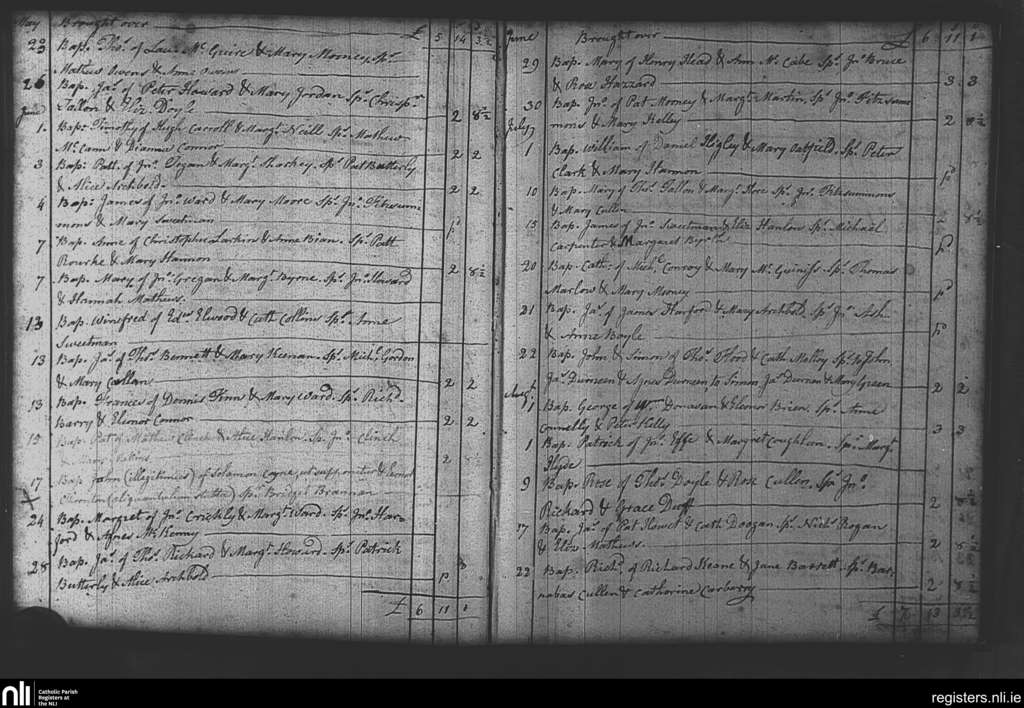 May Brought over £ 5 14 3½
23 Bap. Thos. of Lau: Mc Guire & Mary Mooney, Sprs.
Mathew Owens & Anne Owens
26 Bap. Jas. of Peter Howard & Mary Jordan Sprs. Christr.
Fallon & Eliz. Doyle 2 8½
June
1. Bap: Timothy of Hugh Carroll & Margt. Neill Sprs. Mathew
Mc Cann & Connor 2 2
3 Bap: Patt. of Jno. Logan & Margt. Sharkey. Sprs. Patt Butterly
& Alice Archbold. 2 2
4 Bap: James of Jno. Ward & Mary Moore Sprs. Jno. Fitzsim-
mons & Mary Sweetman pd
7 Bap. Anne of Christopher Larkin & Anne Bian. Sprs. Patt
Rourke & Mary Hannon 2 8½
7 Bap. Mary of Jno. Gregan & Margt. Byrne. Sprs. Jno. Howard
& Hannah Mathews.
13 Bap. Winefred of Edwd. Elwood & Cath Collins Spr. Anne
Sweetman
13 Bap. Jas. of Thos. Bennett & Mary Keenan. Sprs. Michl. Gordon
& Mary Callan 2 2
13 Bap. Frances of Dennis Finn & Mary Ward. Sprs. Richd.
Barry & Elenor Connor 2 2
15 Bap. Pat of Mathew Clinch & Alice Hanlon. Sp. Jno. Clinch
2
17 Bap John (illegitimus) of Solomon Coyne, ut supponitur & Honor
(aliquantulum ) Spr. Bridget Brannan
24 Bap. Margret of Jno. Crickly & Margt. Ward. Sprs. Jno. Har-
ford & Agnes Mc Kenny
28 Bap. Jas. of Thos. Richard & Margt. Howard. Sprs. Patrick
Butterly & Alice Archbold p
£ 6 11 1
June Brought over £ 6 11 1
29 Bap. Mary of Henry Head & Ann Mc Cabe Sprs. Jno. Bruce
& Rose Hazzard 3 3
30 Bap. Jno. of Pat Morney & Margt. Martin, Sprs. Jno. Fitzsim-
mons & Mary Kelly 2 8½
July
1 Bap. William of Daniel Higley & Mary Oatfield. Sprs. Peter
Clark & Mary Hannon pd
10 Bap. Mary of Thos. Fallon & Margt. Hore Sprs. Jno. Fitzsimmons
& Mary Cullen 2 8½
15 Bap. James of Jno. Sweetman & Eliz Hanlon Sprs. Michael
Carpenter & Margaret Byrne pd
20 Bap. Cath: of Michl. Conroy & Mary Mc Guiniss Sprs. Thomas
Marlow & Mary Morney pd
21 Bap. Jas. of James Harford & Mary Archbold. Sprs. Jno. Ash
& Anne Boyle pd
22 Bap. John & Simon of Thos. Flood & Cath Molloy Sprs. to John
Jas. Durneen & Agnes Durneen to Simon Jas. Durnan & Mary Green 2 2
Augt.
1 Bap. George of Wm. Donovan & Elenor Brien. Sprs. Anne
Connelly & Peter Kelly 3 3
1 Bap. Patrick of Jno. Effe & Margret Coughlan. Spr. Margt.
Hyde
9 Bap. Rose of Thos. Doyle & Rose Cullen. Sprs. Jno.
Richard & Grace Duff 2 8½
17 Bap. Jas. of Pat Howet & Cath Doogan Sprs. Nichs. Rogan
& Eliz. Mathews. 2 8½
22 Bap. Richd. of Richard Keane & Jane Barrett. Sprs. Bar-
nabas Cullen & Catherine Carberry 2 8½
£ 7 13 3½
nli Catholic Parish
Registers at
the NLI
registers.nli.ie